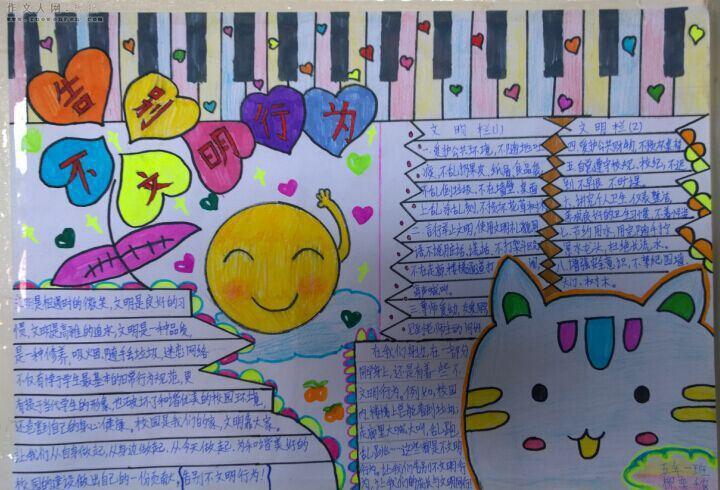 作文人网
www.zuowenren.com
告别
不文明行为
文明栏(1)
一.爱护公共环境,不随地吐
痰,不乱扔果皮、纸屑、食品袋,
不乱倒垃圾,不在墙壁、桌面
上乱涂乱刻,不
二.言行举止文明,使用文明礼貌用
语不说脏话、谎话,不打架斗殴
不在走廊、楼梯追逐打
三.尊师爱幼,
文明栏(2)
四.爱护公共财物,不损坏桌椅
五.自觉遵守校规、校纪,不迟
到、不早退、不旷课。
六.讲究个人卫生、仪表整洁,
养成良好的卫生习惯,不
七.节约用水,用完随手拧
紧水龙头,杜绝长流水。
八.增强安全意识,不攀爬围墙、
大门、树木。
文明是相遇时的微笑,文明是良好的习
惯,文明是高雅的追求,文明是一种品质,
是一种修养。吸烟、随手丢垃圾、迷恋网络
不仅有悖于学生最基本的日常行为规范,更
有损于当代学生的形象,也破坏了和谐优美的校园环境,
还危害到自己的身心健康。校园是我们的家,文明靠大家。
让我们从自身做起,从身边做起,从今天做起,为和谐美好的
校园的建设做出自己的一份贡献,告别不文明行为!
在我们身边,在一部分
同学身上,还是有着一些不
文明行为。例如,校园
内、楼梯上总能看到垃圾,
在走廊里大喊大叫、乱跑
乱跳……这些都是不文明
行为。让我们告别不文明行
为,让我们的
五年一班